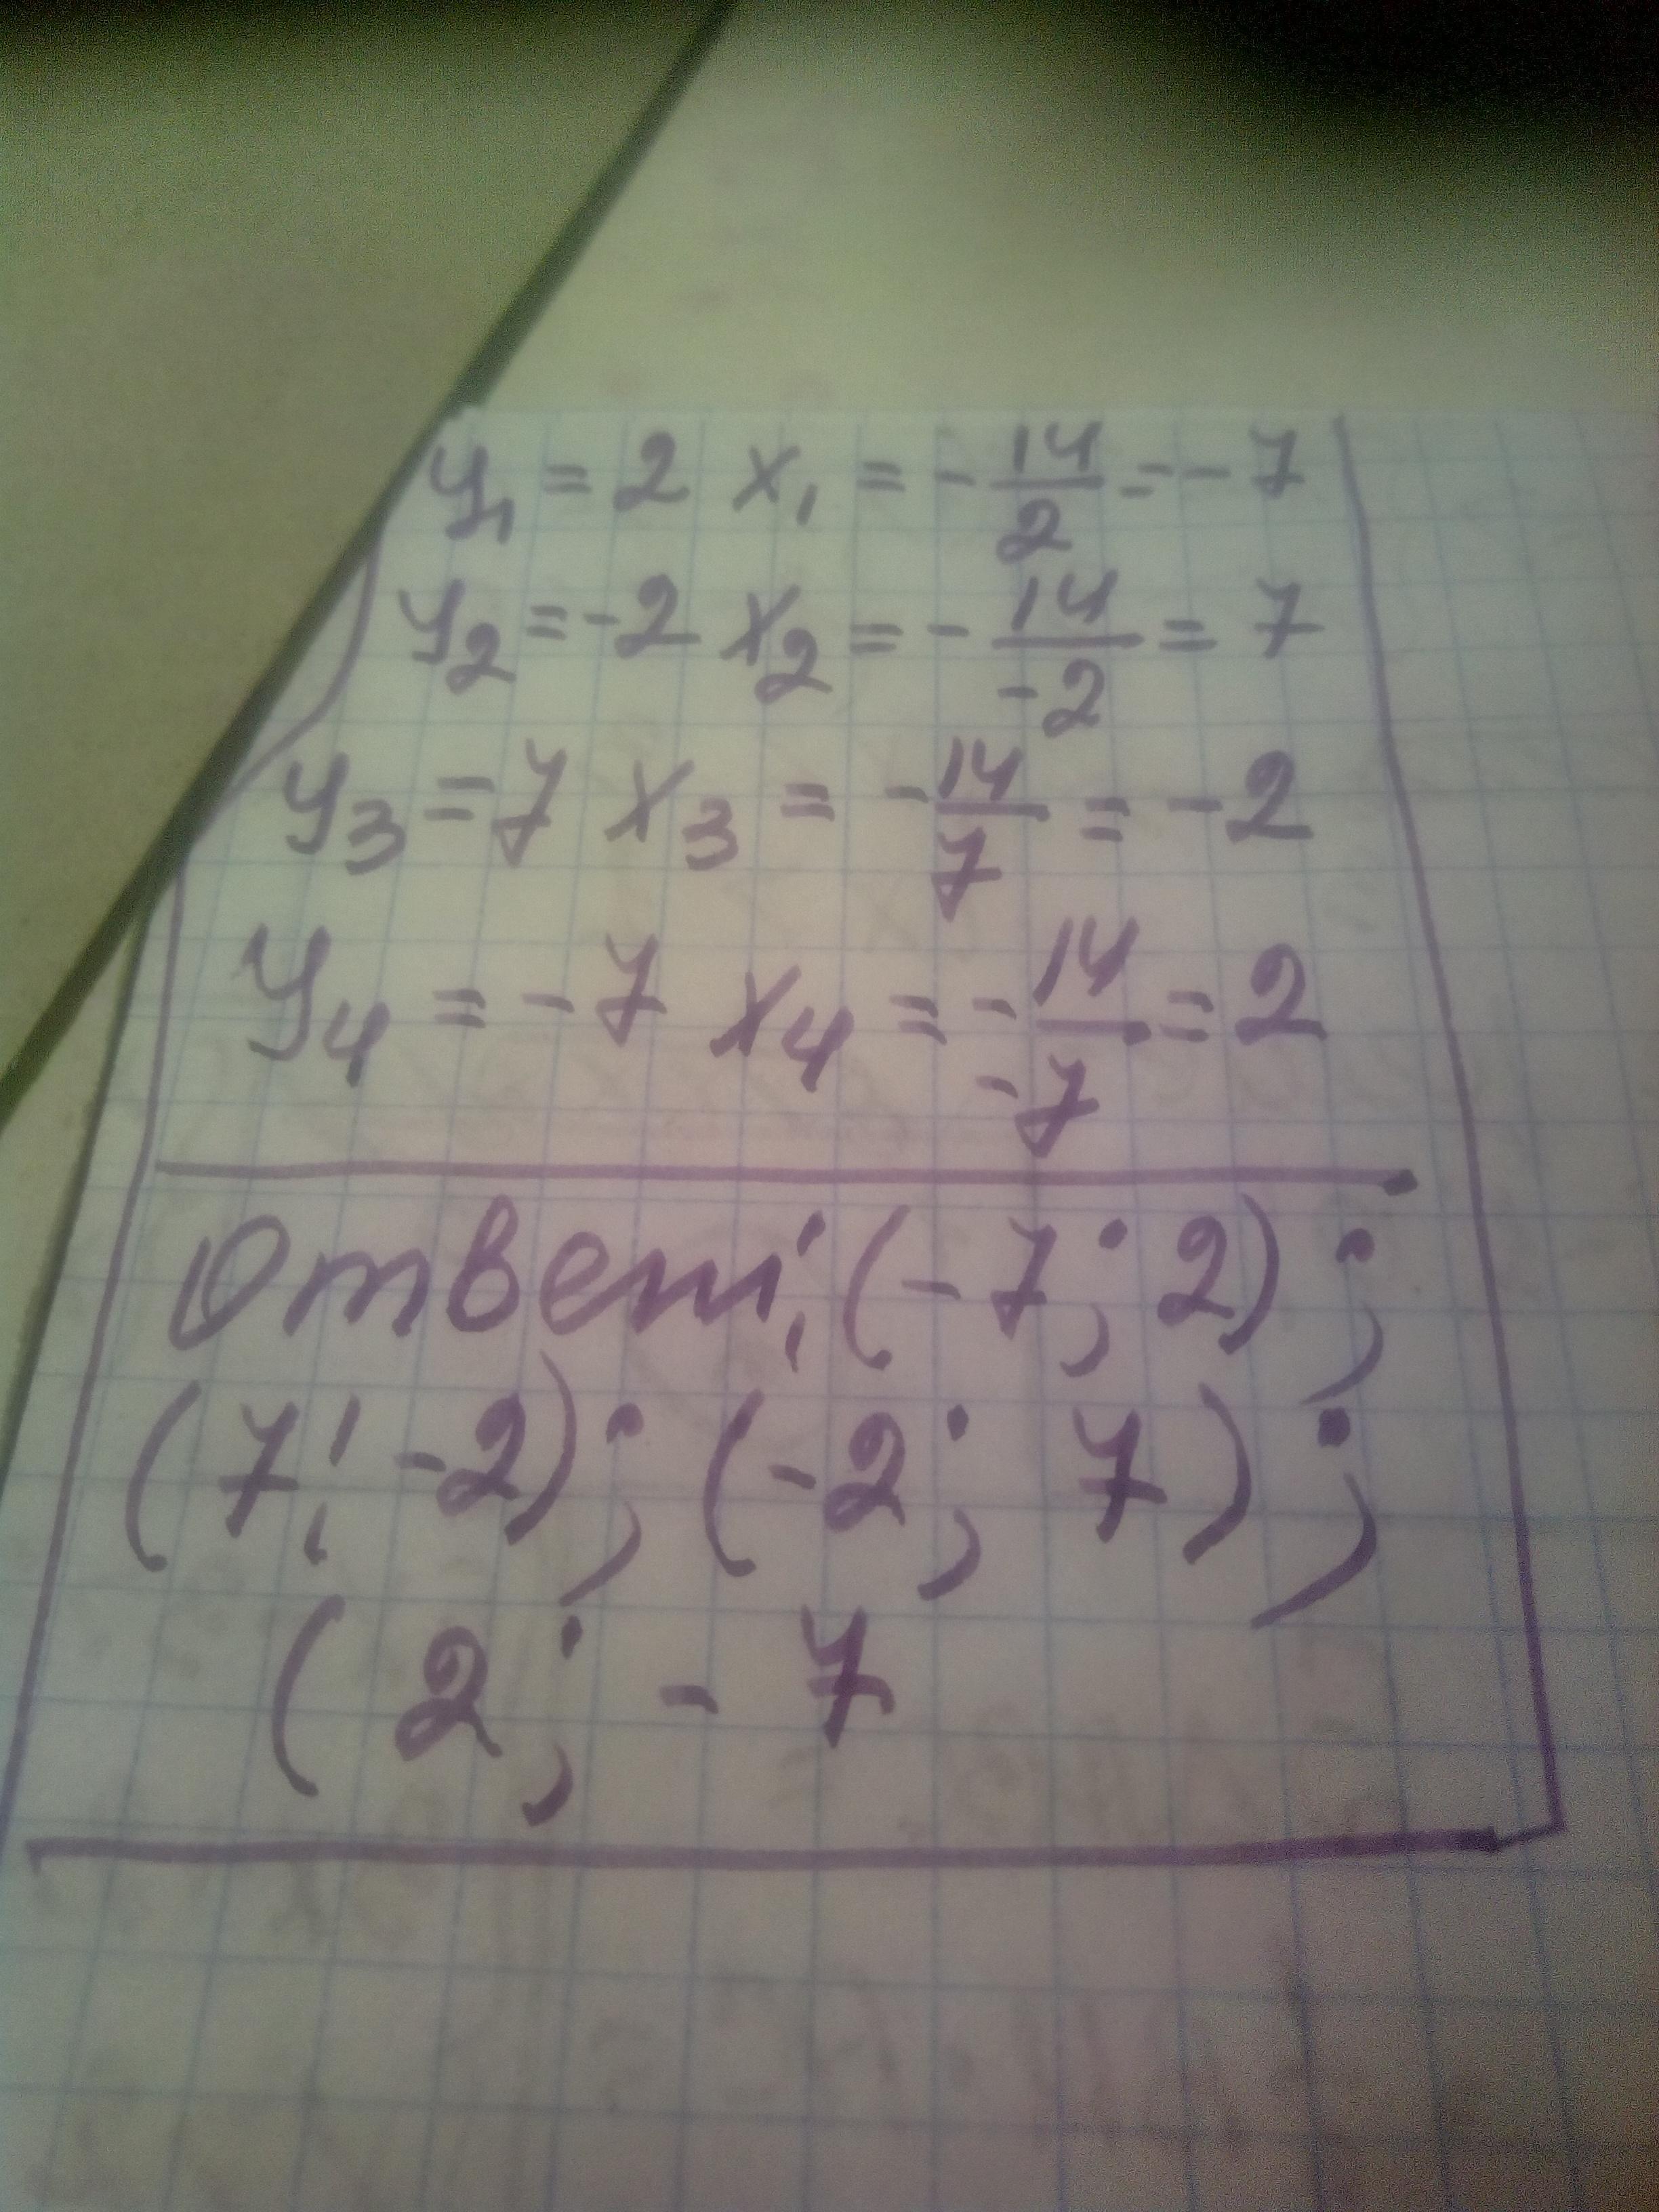 y₁ = 2 x₁ = -14/2 = -7
y₂ = -2 x₂ = -14/-2 = 7
y₃ = 7 x₃ = -14/7 = -2
y₄ = -7 x₄ = -14/-7 = 2
Ответ: (-7; 2);
(7; -2); (-2; 7);
(2; -7